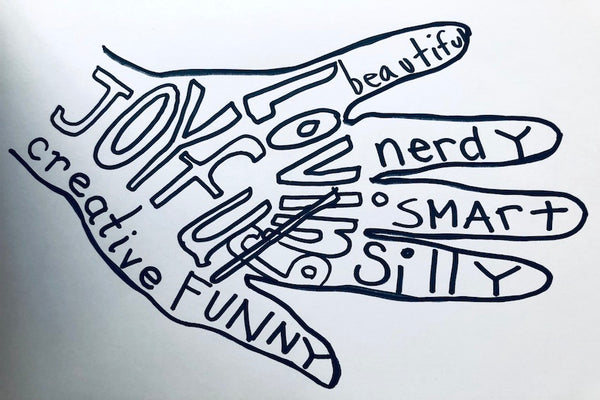 beautiful
nerdy
SMArt
Silly
FUNNY
Loving
JOYful
creative